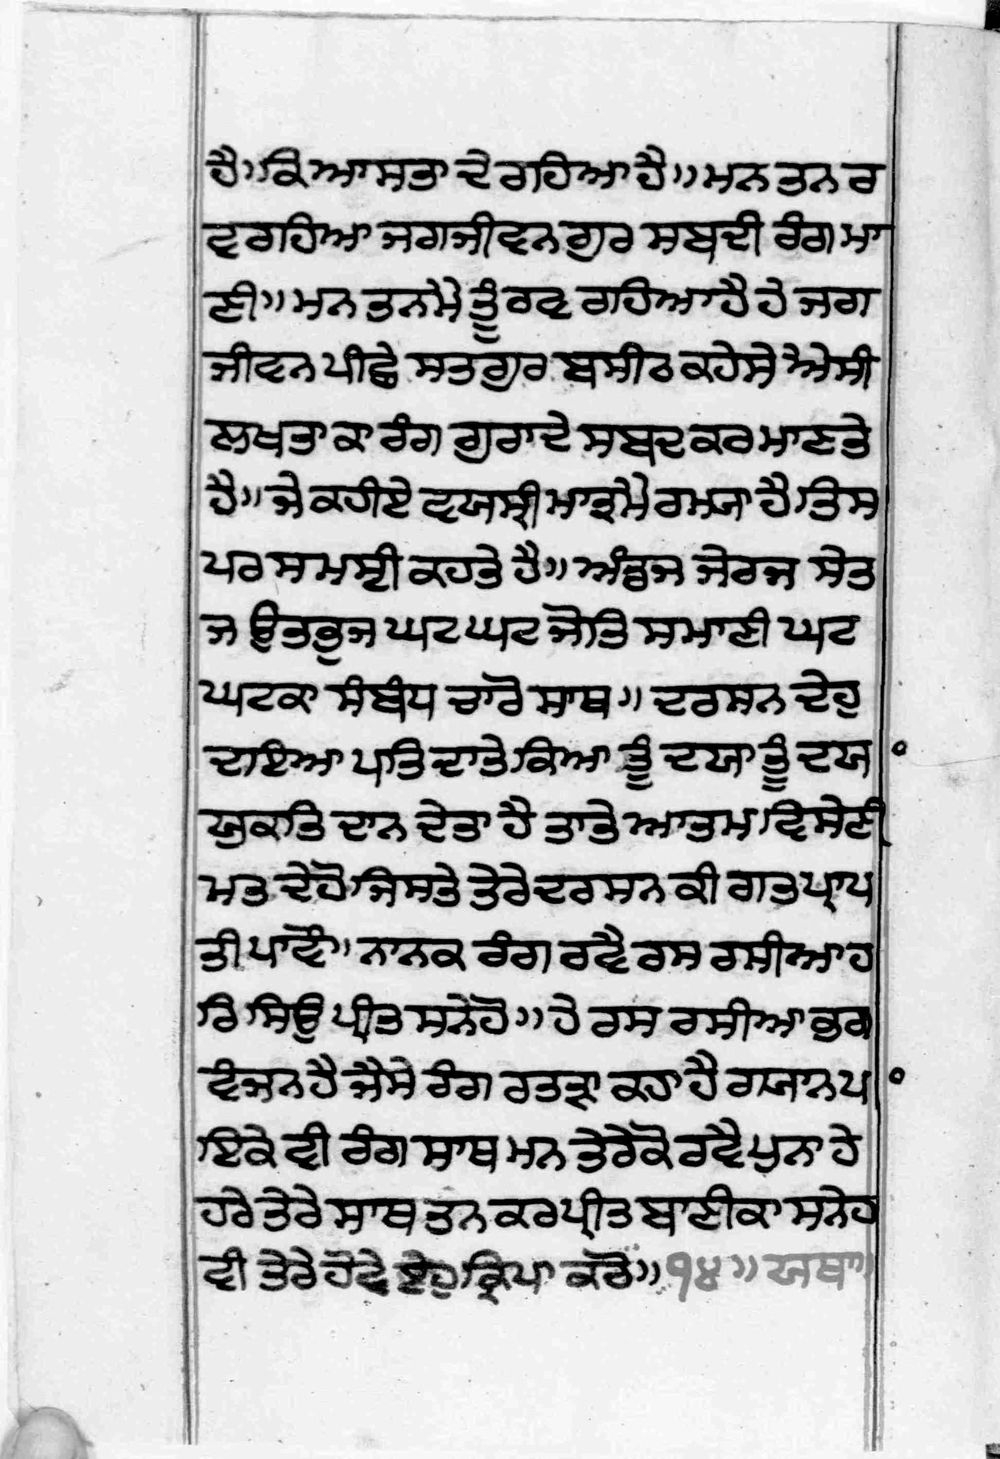 ਹੈ॥ਕਿਆ ਸਤਾ ਦੇ ਰਹਿਆ ਹੈ॥ਮਨ ਤਨ ਰ
ਵ ਰਹਿਆ ਜਗਜੀਵਨ ਗੁਰ ਸਬਦੀ ਰੰਗ ਮਾ
ਣੀ॥ਮਨ ਤਨ ਮੇ ਤੂੰ ਰਵ ਰਹਿਆ ਹੈ ਹੇ ਜਗ
ਜੀਵਨ ਪੀਛੇ ਸਤਗੁਰ ਬਸੀਠ ਕਹੇ ਸੇ ਐਸੀ
ਲਖਤਾ ਕਾ ਰੰਗ ਗੁਰਾ ਦੇ ਸਬਦ ਕਰ ਮਾਣਤੇ
ਹੈ॥ਜੇ ਕਹੀਏ ਵਯਸ੍ਟੀ ਮਾਤ੍ਰ ਮੇ ਰਮਯਾ ਹੈ ਤਿਸ
ਪਰ ਸਮਸ੍ਟੀ ਕਹਤੇ ਹੈ॥ਅੰਡਜ ਜੇਰਜ ਸੇਤ
ਜ ਉਤਭੁਜ ਘਟ ਘਟ ਜੋਤਿ ਸਮਾਣੀ ਘਟ
ਘਟ ਕਾ ਸੰਬੰਧ ਚਾਰੋ ਸਾਥ॥ਦਰਸਨ ਦੇਹੁ
ਦਇਆਪਤਿ ਦਾਤੇ ਕਿਆ ਤੂੰ ਦਯਾ ਤੂੰ ਦਯ
ਯੁਕਤਿ ਦਾਨ ਦੇਤਾ ਹੈ ਤਾਤੇ ਆਤਮ ਵਿਸੇਣੀ
ਮਤ ਦੇਹੋ ਜਿਸਤੇ ਤੇਰੇ ਦਰਸਨ ਕੀ ਗਤ ਪ੍ਰਾਪ
ਤੀ ਪਾਵੌ॥ਨਾਨਕ ਰੰਗ ਰਵੈ ਰਸ ਰਸੀਆ ਹ
ਰਿ ਸਿਉ ਪ੍ਰੀਤ ਸਨੇਹੋ॥ਹੇ ਰਸ ਰਸੀਆ ਭੁਰ
ਵੰਜਨ ਹੈ ਜੈਸੇ ਰੰਗ ਰਤੜਾ ਕਹਾ ਹੈ ਗਯਾਨ ਪ
ਇਕੇ ਵੀ ਰੰਗ ਸਾਥ ਮਨ ਤੇਰੇ ਕੋ ਰਵੈ ਪੁਨਾ ਹੇ
ਹਰੇ ਤੇਰੇ ਸਾਥ ਤਨ ਕਰ ਪ੍ਰੀਤ ਬਾਣੀ ਕਾ ਸਨੇਹ
ਵੀ ਤੇਰੇ ਹੋਵੇ ਏਹੁ ਕ੍ਰਿਪਾ ਕਰੋ॥੧੪॥ਯਥਾ॥